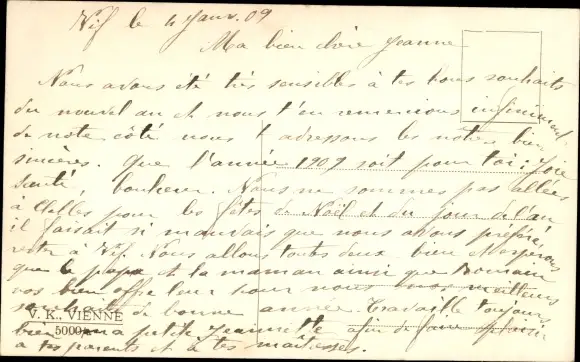 Vif le 4 Janv. 09
Ma bien chère Jeanne
Nous avons été très sensibles à tes bons souhaits
du nouvel an et nous t'en remercions infiniment
de notre côté nous t'adressons les nôtres bien
sincères. Que l'année 1909 soit pour toi: Joie
santé, bonheur. Nous ne sommes pas allées
à pour les fêtes de Noël et du jour de l'an
il faisait si mauvais que nous avons préféré
rester à Vif. Nous allons toutes deux bien
que le papa et la maman ainsi que
vos bien offre leur pour nous nos meilleurs
souhaits de bonne année. Travaille toujours
V. K., VIENNE
bien ma petite Jeannette afin de faire plaisir
5009
à tes parents et à tes maîtresses.